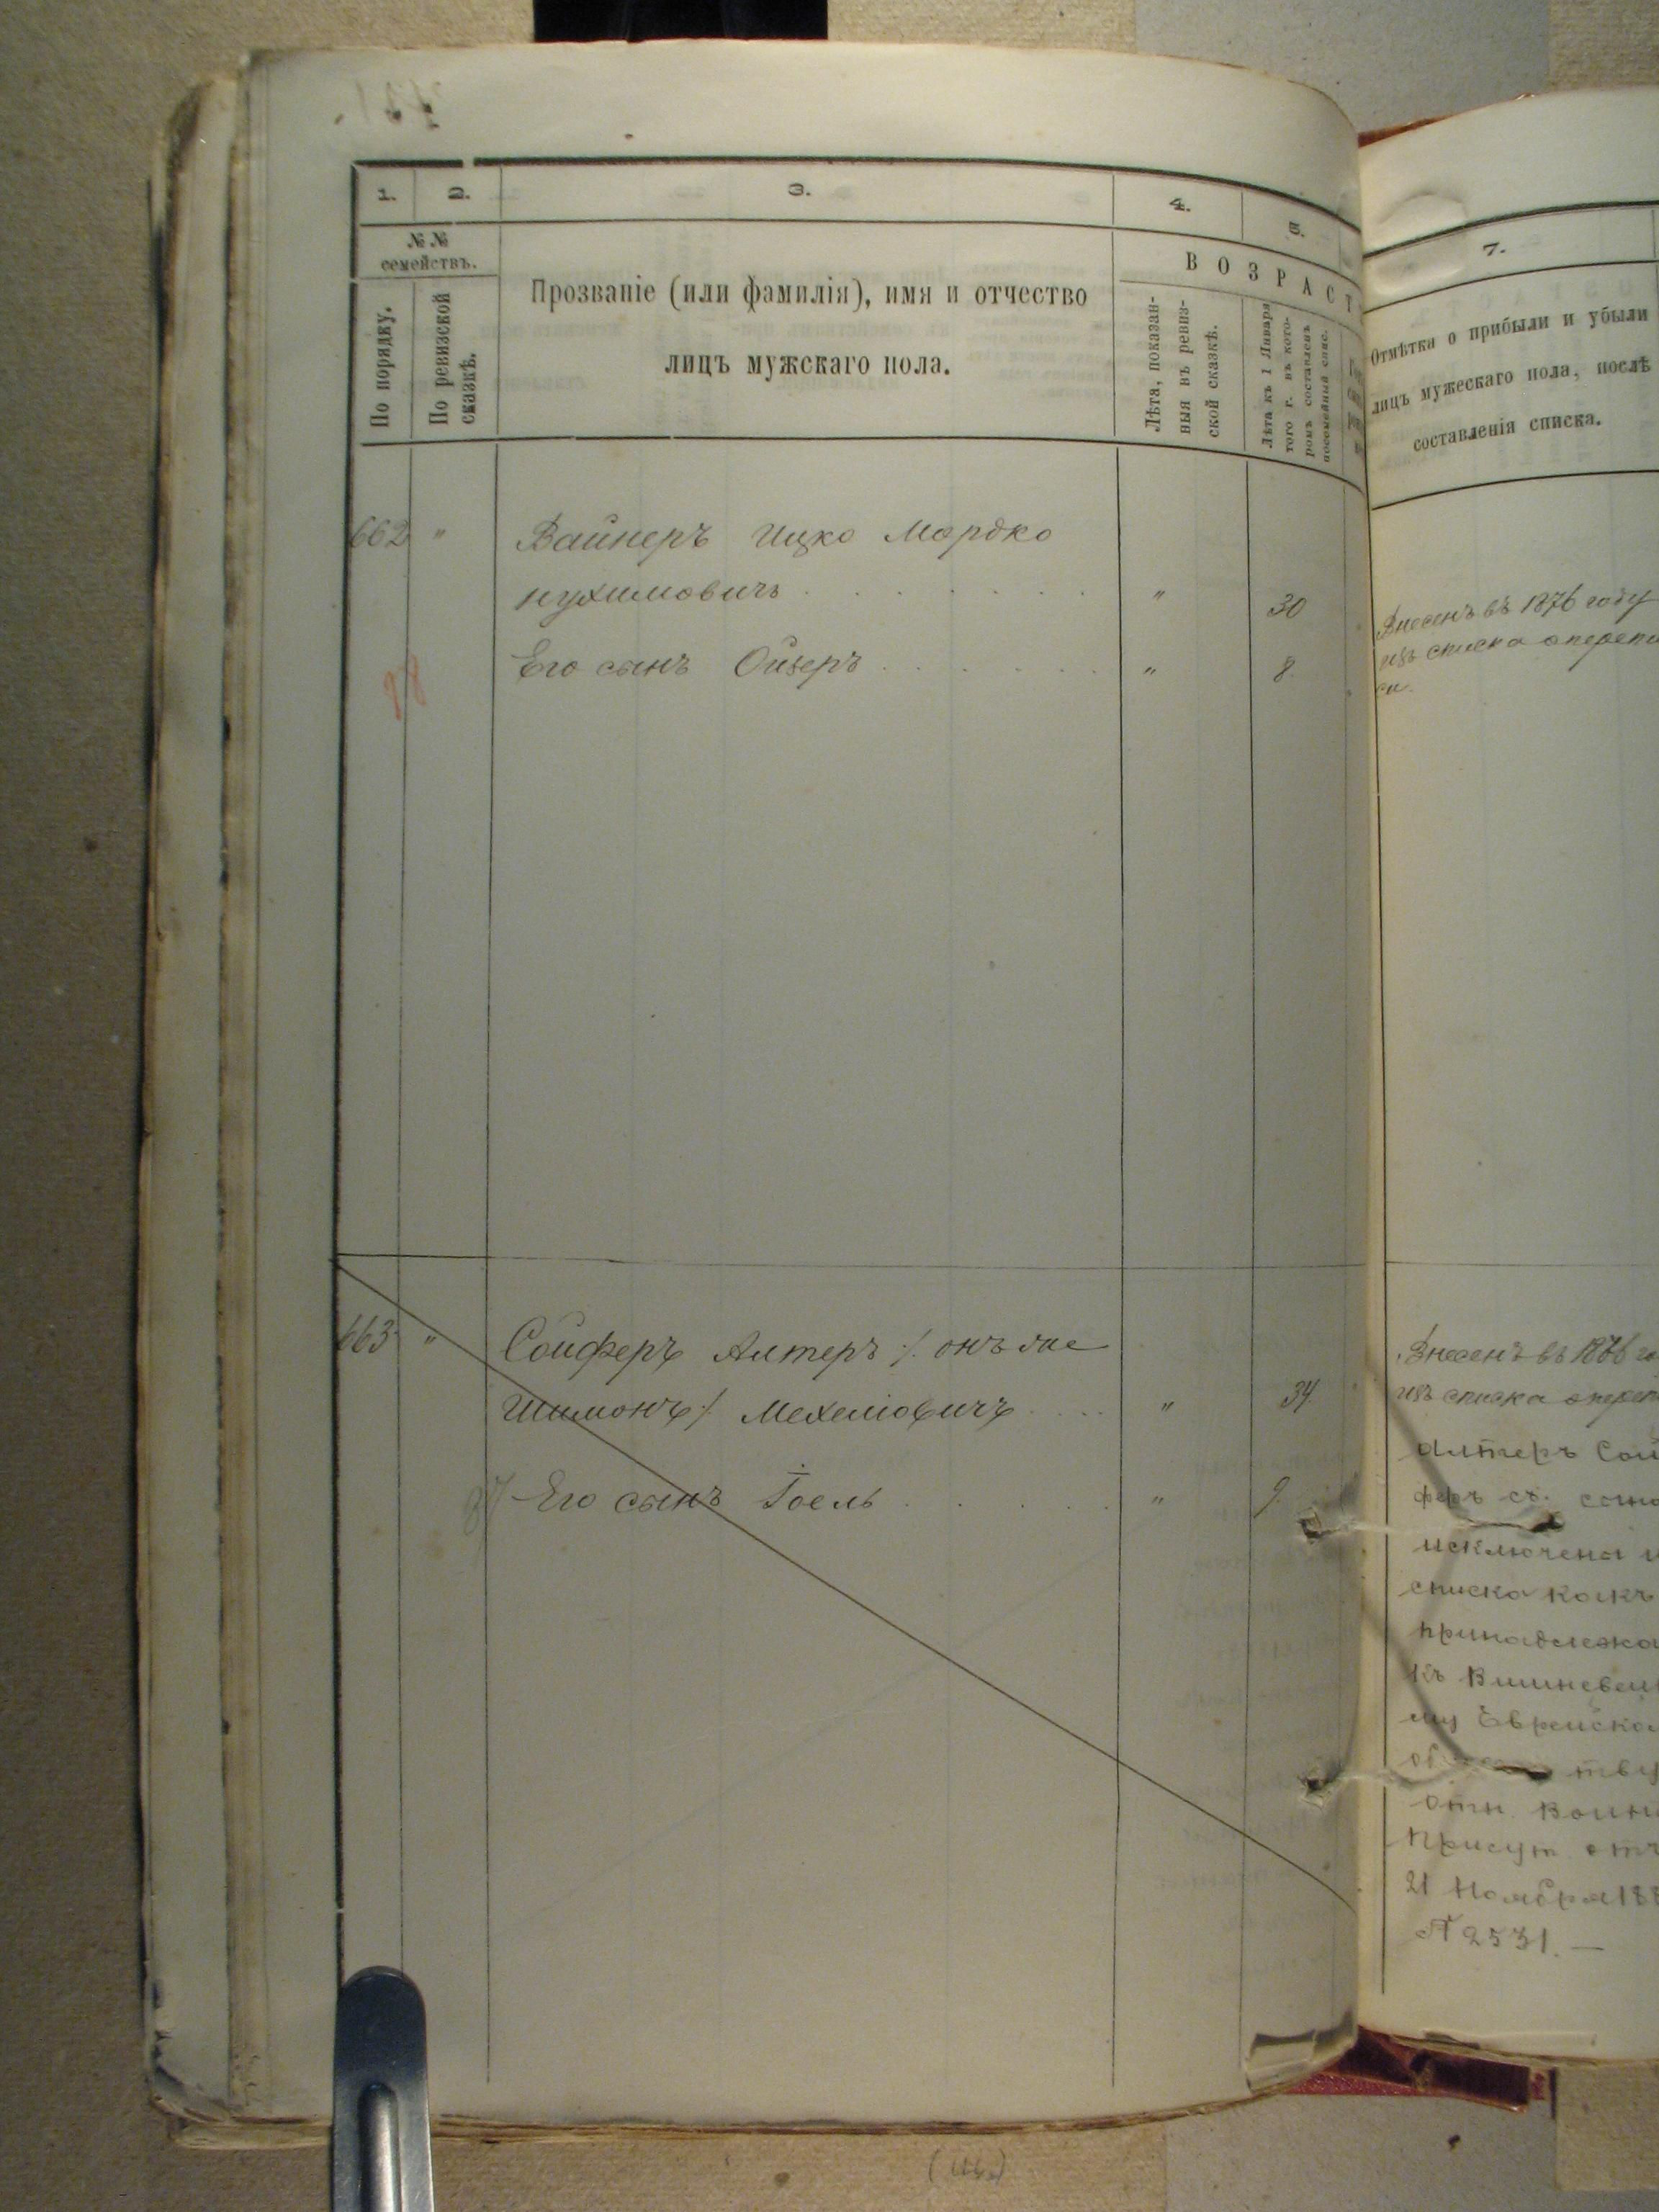 1.
2.
3.
4.
5.
7.
№ №
семействъ.
По порядку.
По ревизской
сказкѣ.
Прозваніе (или фамилія), имя и отчество
лицъ мужскаго пола.
ВОЗРАСТ
Лѣта, показан-
ныя въ ревиз-
ской сказкѣ.
Лѣта къ 1 Января
того г. въ кото-
ромъ составленъ
посемейный спис.
Отмѣтка о прибыли и убыли
лицъ мужескаго пола, послѣ
составленія списка.
662 " Вайнеръ Ицко Мордко
нухимовичъ . . . . . . . " 30
Его сынъ Ойзеръ . . . . . . " 8.
Внесенъ въ 1876 году
изъ списка
си.
663 " Сойферъ Алтеръ ⁒ онъ же
Шимонъ ⁒ Мехелiовичъ . . . . " 34.
Его сынъ Іоель . . . . . " 9.
Внесенъ въ 1876 го
изъ списка
Алтеръ Сой
феръ съ сыно
исключены и
списка какъ
принадлежа
къ Вишневец
му Еврейско
тву
отн. Воин
Присут. отъ
21 Ноября 188
№ 2531. —